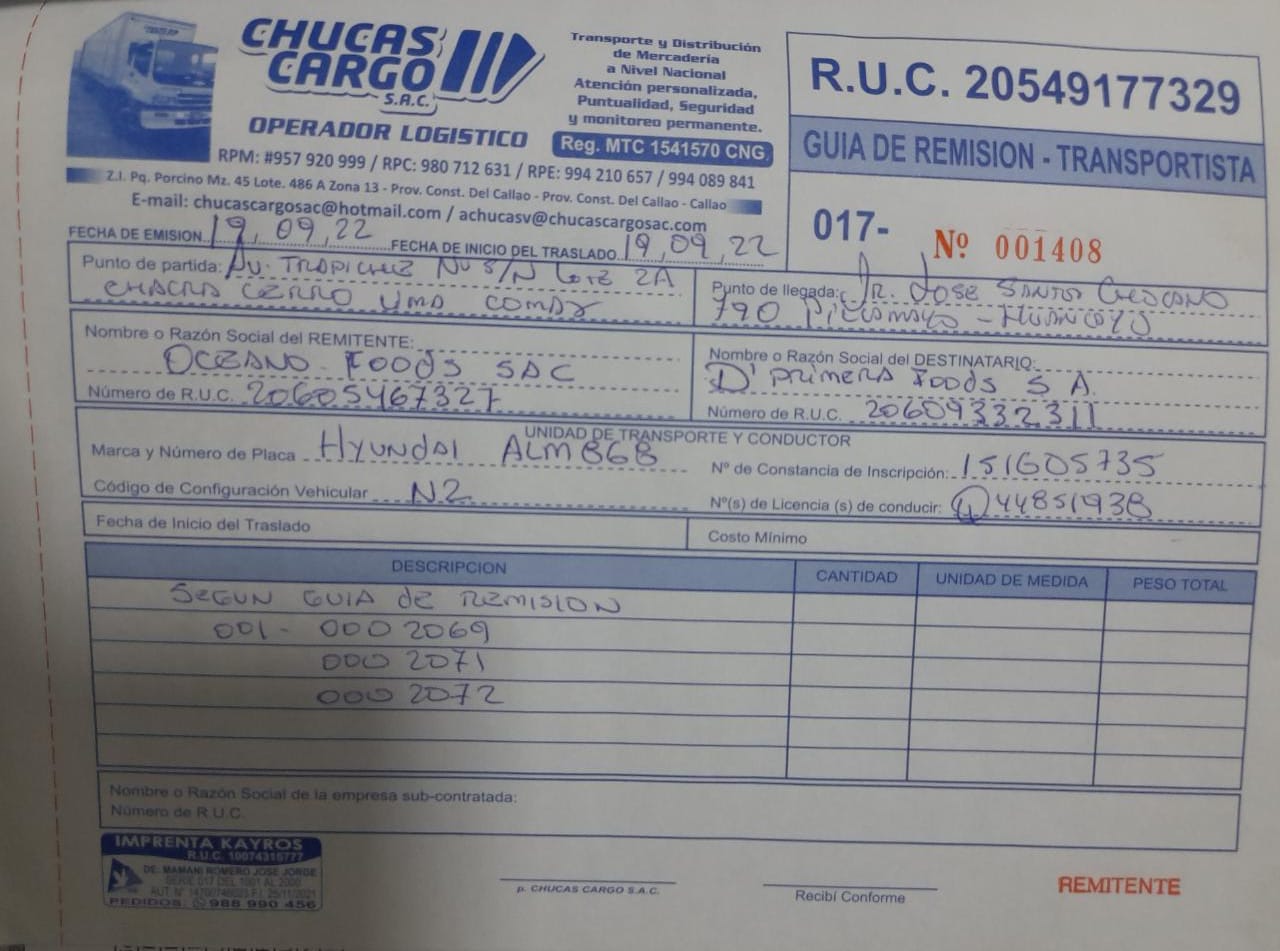 CHUCAS CARGO S.A.C.
OPERADOR LOGISTICO
Transporte y Distribución
de Mercadería
a Nivel Nacional
Atención personalizada,
Puntualidad, Seguridad
y monitoreo permanente.
Reg. MTC 1541570 CNG
RPM: #957 920 999 / RPC: 980 712 631 / RPE: 994 210 657 / 994 089 841
Z.I. Pq. Porcino Mz. 45 Lote. 486 A Zona 13 - Prov. Const. Del Callao - Prov. Const. Del Callao - Callao
E-mail: chucascargosac@hotmail.com / achucasv@chucascargosac.com
R.U.C. 20549177329
GUIA DE REMISION - TRANSPORTISTA
017- Nº 001408
FECHA DE EMISION 19, 09, 22 FECHA DE INICIO DEL TRASLADO 19, 09, 22
Punto de partida: AV. TRAPICHE NU S/N LOTE 2A
CHACRA CERRO COMAS
Punto de llegada: JR. JOSE SANTOS CHOCANO
790 PILCOMAYO - HUANCAYO
Nombre o Razón Social del REMITENTE:
OCEANO FOODS SAC
Número de R.U.C. 20605467327
Nombre o Razón Social del DESTINATARIO:
D' PRIMERA FOODS S A.
Número de R.U.C. 20609332311
UNIDAD DE TRANSPORTE Y CONDUCTOR
Marca y Número de Placa HYUNDAI ALM868
Nº de Constancia de Inscripción: 151605735
Código de Configuración Vehicular N2
Nº(s) de Licencia (s) de conducir: Q44851938
Fecha de Inicio del Traslado
Costo Mínimo
DESCRIPCION CANTIDAD UNIDAD DE MEDIDA PESO TOTAL
SEGUN GUIA de REMISION
001- 0002069
0002071
0002072
Nombre o Razón Social de la empresa sub-contratada:
Número de R.U.C.
IMPRENTA KAYROS
R.U.C. 10074315777
DE: MAMANI ROMERO JOSE JORGE
SERIE 017 DEL 1001 AL 2000
PEDIDOS: 988 990 456
p. CHUCAS CARGO S.A.C.
Recibí Conforme
REMITENTE